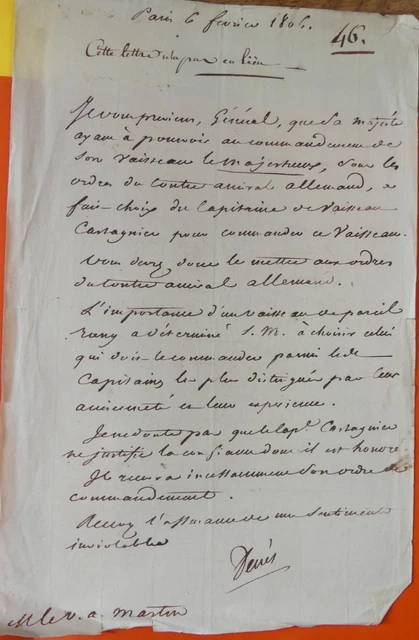 Paris 6 fevrier 1806.
46.
Cette lettre n'a pas eu lieu
Je vous previens, Général, que Sa majesté
ayant à pourvoir au commandement de
son Vaisseau le majestueux, sous les
ordres du contre amiral allemand, a
fait choix du Capitaine de Vaisseau
Castagnier pour commander ce Vaisseau.
Vous devez donc le mettre aux ordres
du Contre amiral allemand.
L'importance d'un Vaisseau de pareil
rang a déterminé S. M. à choisir celui
qui doit le commander parmi les
Capitaines les plus distingués par leur
ancienneté et leur experience.
Je ne doute pas que le Cap.e Castagnier
ne justifie la confiance dont il est honoré
Il recevra incessamment son ordre de
commandement.
Recevez l'assurance de mes sentiments
inviolables
Decrès
M le v. a. martin